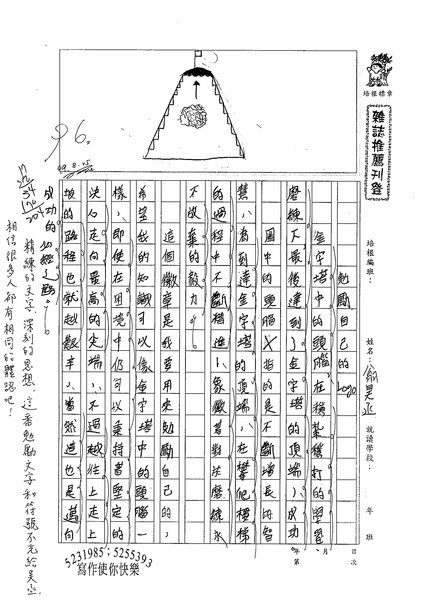 培根標章
雜誌推薦刊登
培根編班：
姓名：昊丞
就讀學校：
年 班
年 月 日
第 次
96.
99.8.25
勉勵自己的Logo
金字塔中的頭腦在積紮穩打的學習、
磨練下最後達到了金字塔的頂端，成功
圖中的頭腦，指的是不斷增長的智
慧，為到達金字塔的頂端，在攀爬樓梯
的過程中不斷精進，象徵著對於磨練永
不放棄的毅力。
這個徽章是我要用來勉勵自己的，
希望我的知識可以像金字塔中的頭腦一
樣，即使在困境中仍可以秉持著堅定的
決心走向最高的尖端，不過越往上走上
坡的路程也就越艱辛，當然這也是邁向
成功的必經之路。
精練的文字，深刻的思想，這番勉勵文字和符號不光給昊丞
相信很多人都有相同的體認吧！
5231985；5255393
寫作使你快樂